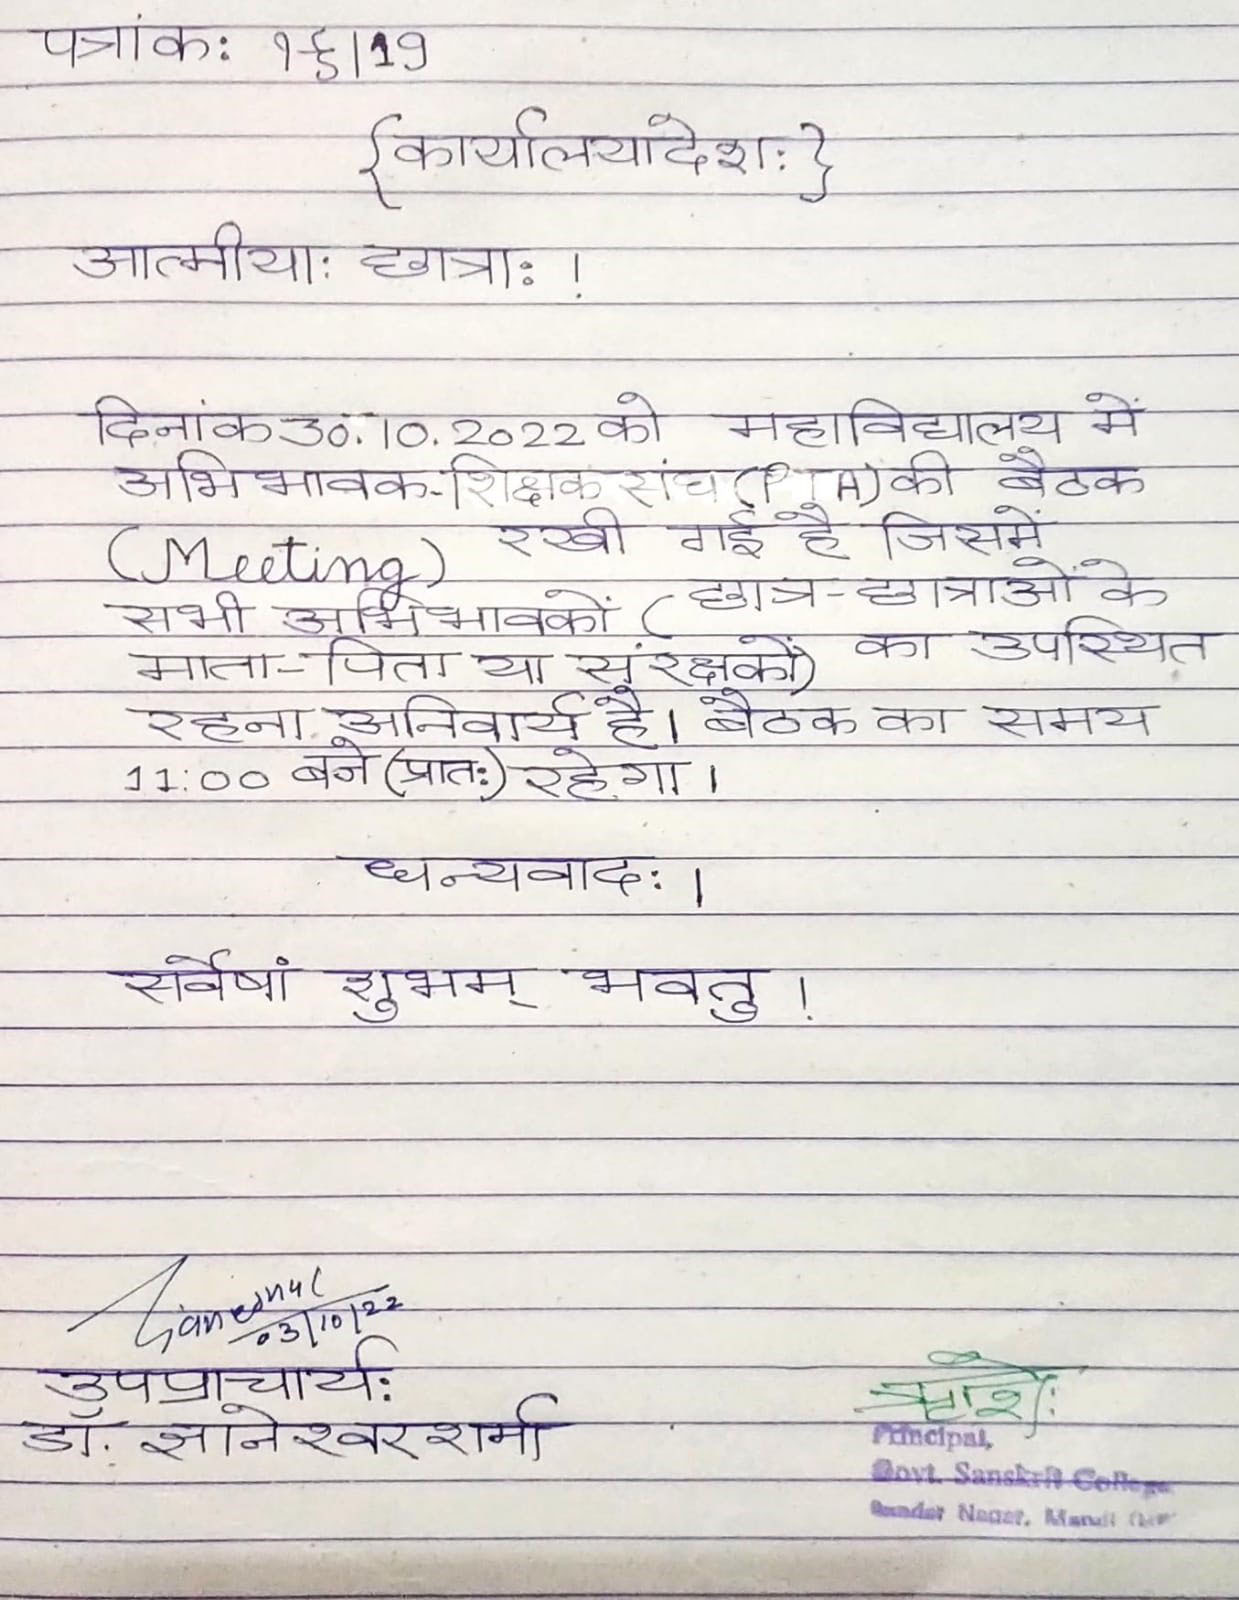 पत्रांक: १६|19
{कार्यालयादेशः}
आत्मीयाः छात्राः !
दिनांक 30.10.2022 को महाविद्यालय में
अभिभावक-शिक्षक संघ (PTA) की बैठक
(Meeting) रखी गई है जिसमें
सभी अभिभावकों (छात्र-छात्राओं के
माता-पिता या संरक्षकों) का उपस्थित
रहना अनिवार्य है। बैठक का समय
11:00 बजे (प्रातः) रहेगा।
धन्यवादः।
सर्वेषां शुभम् भवतु !
03/10/22
उपप्राचार्यः
डॉ. ज्ञानेश्वर शर्मा
Principal,
Govt. Sanskrit College
Sunder Nagar, Mandi